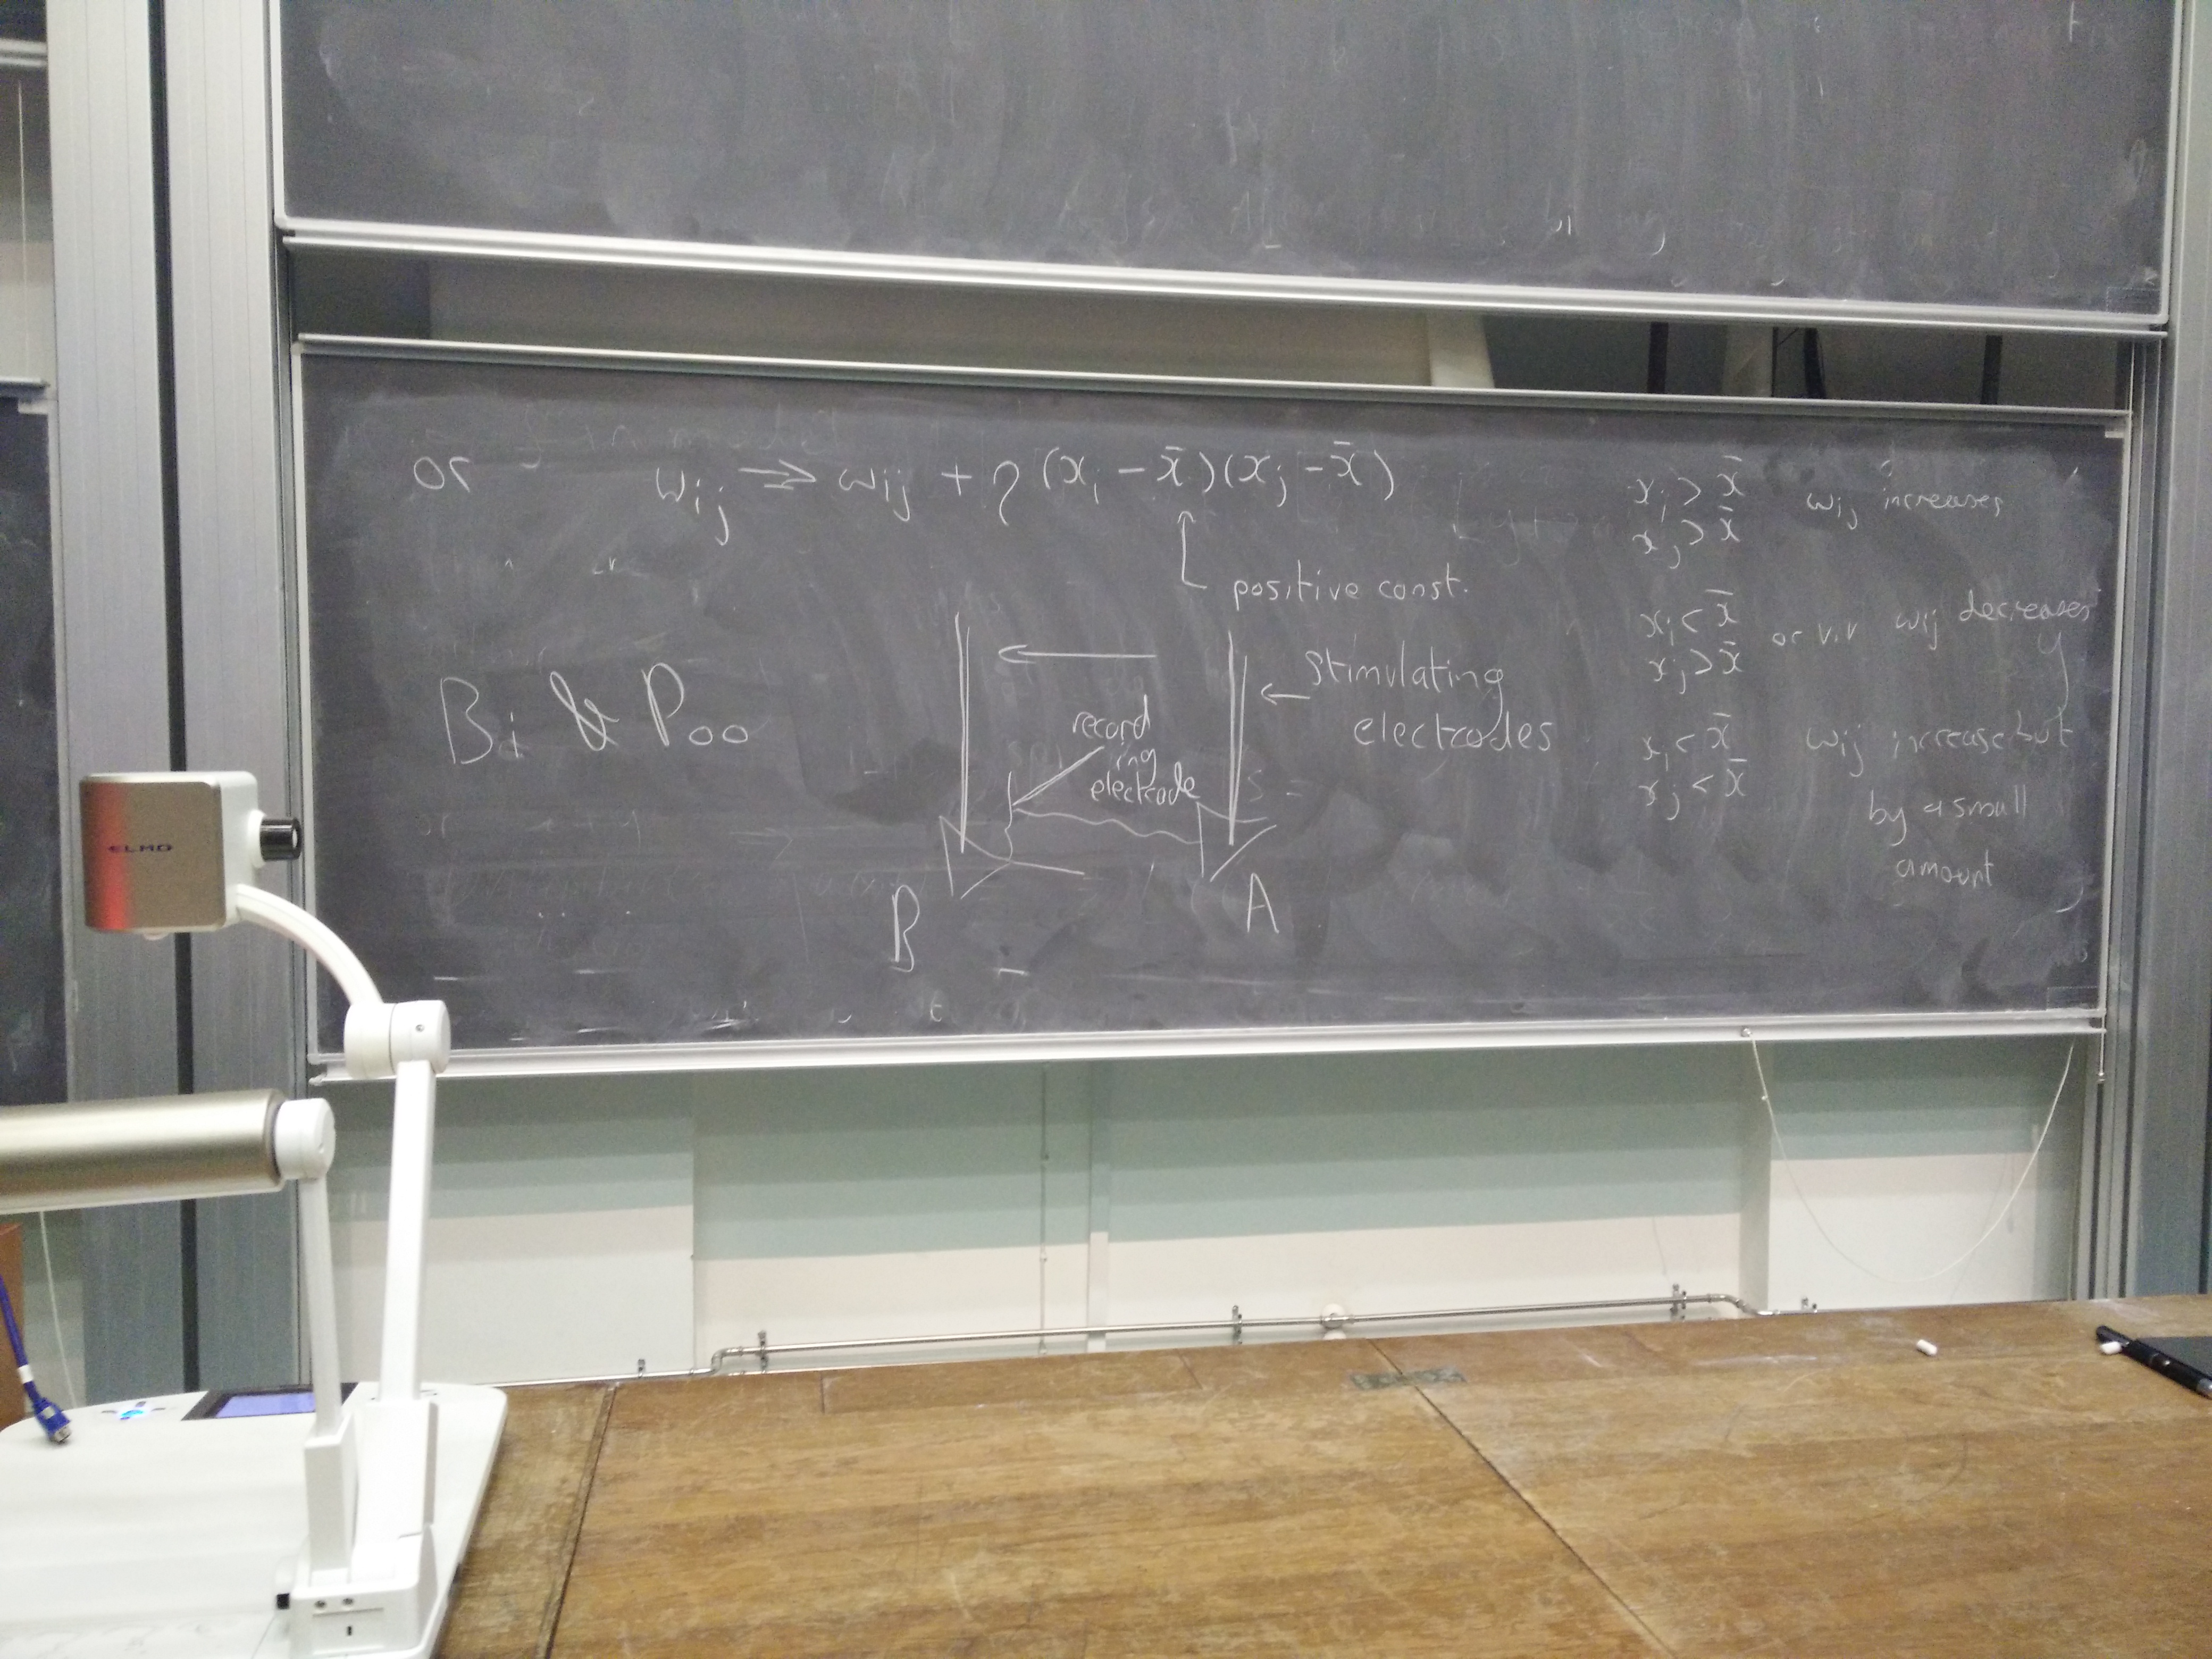 or wij => wij + η (xi - x̄)(xj - x̄)
positive const.
Bi & Poo
stimulating
electrodes
record
ing
electrode
B
A
xi > x̄
xj > x̄
wij increases
xi < x̄
xj > x̄
or v.v wij decreases
xi < x̄
xj < x̄
wij increase but
by a small
amount
ELMO